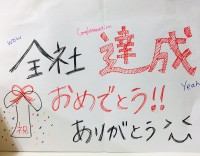 wow
Conglaturation
Yeah
全社達成
おめでとう!!
ありがとう